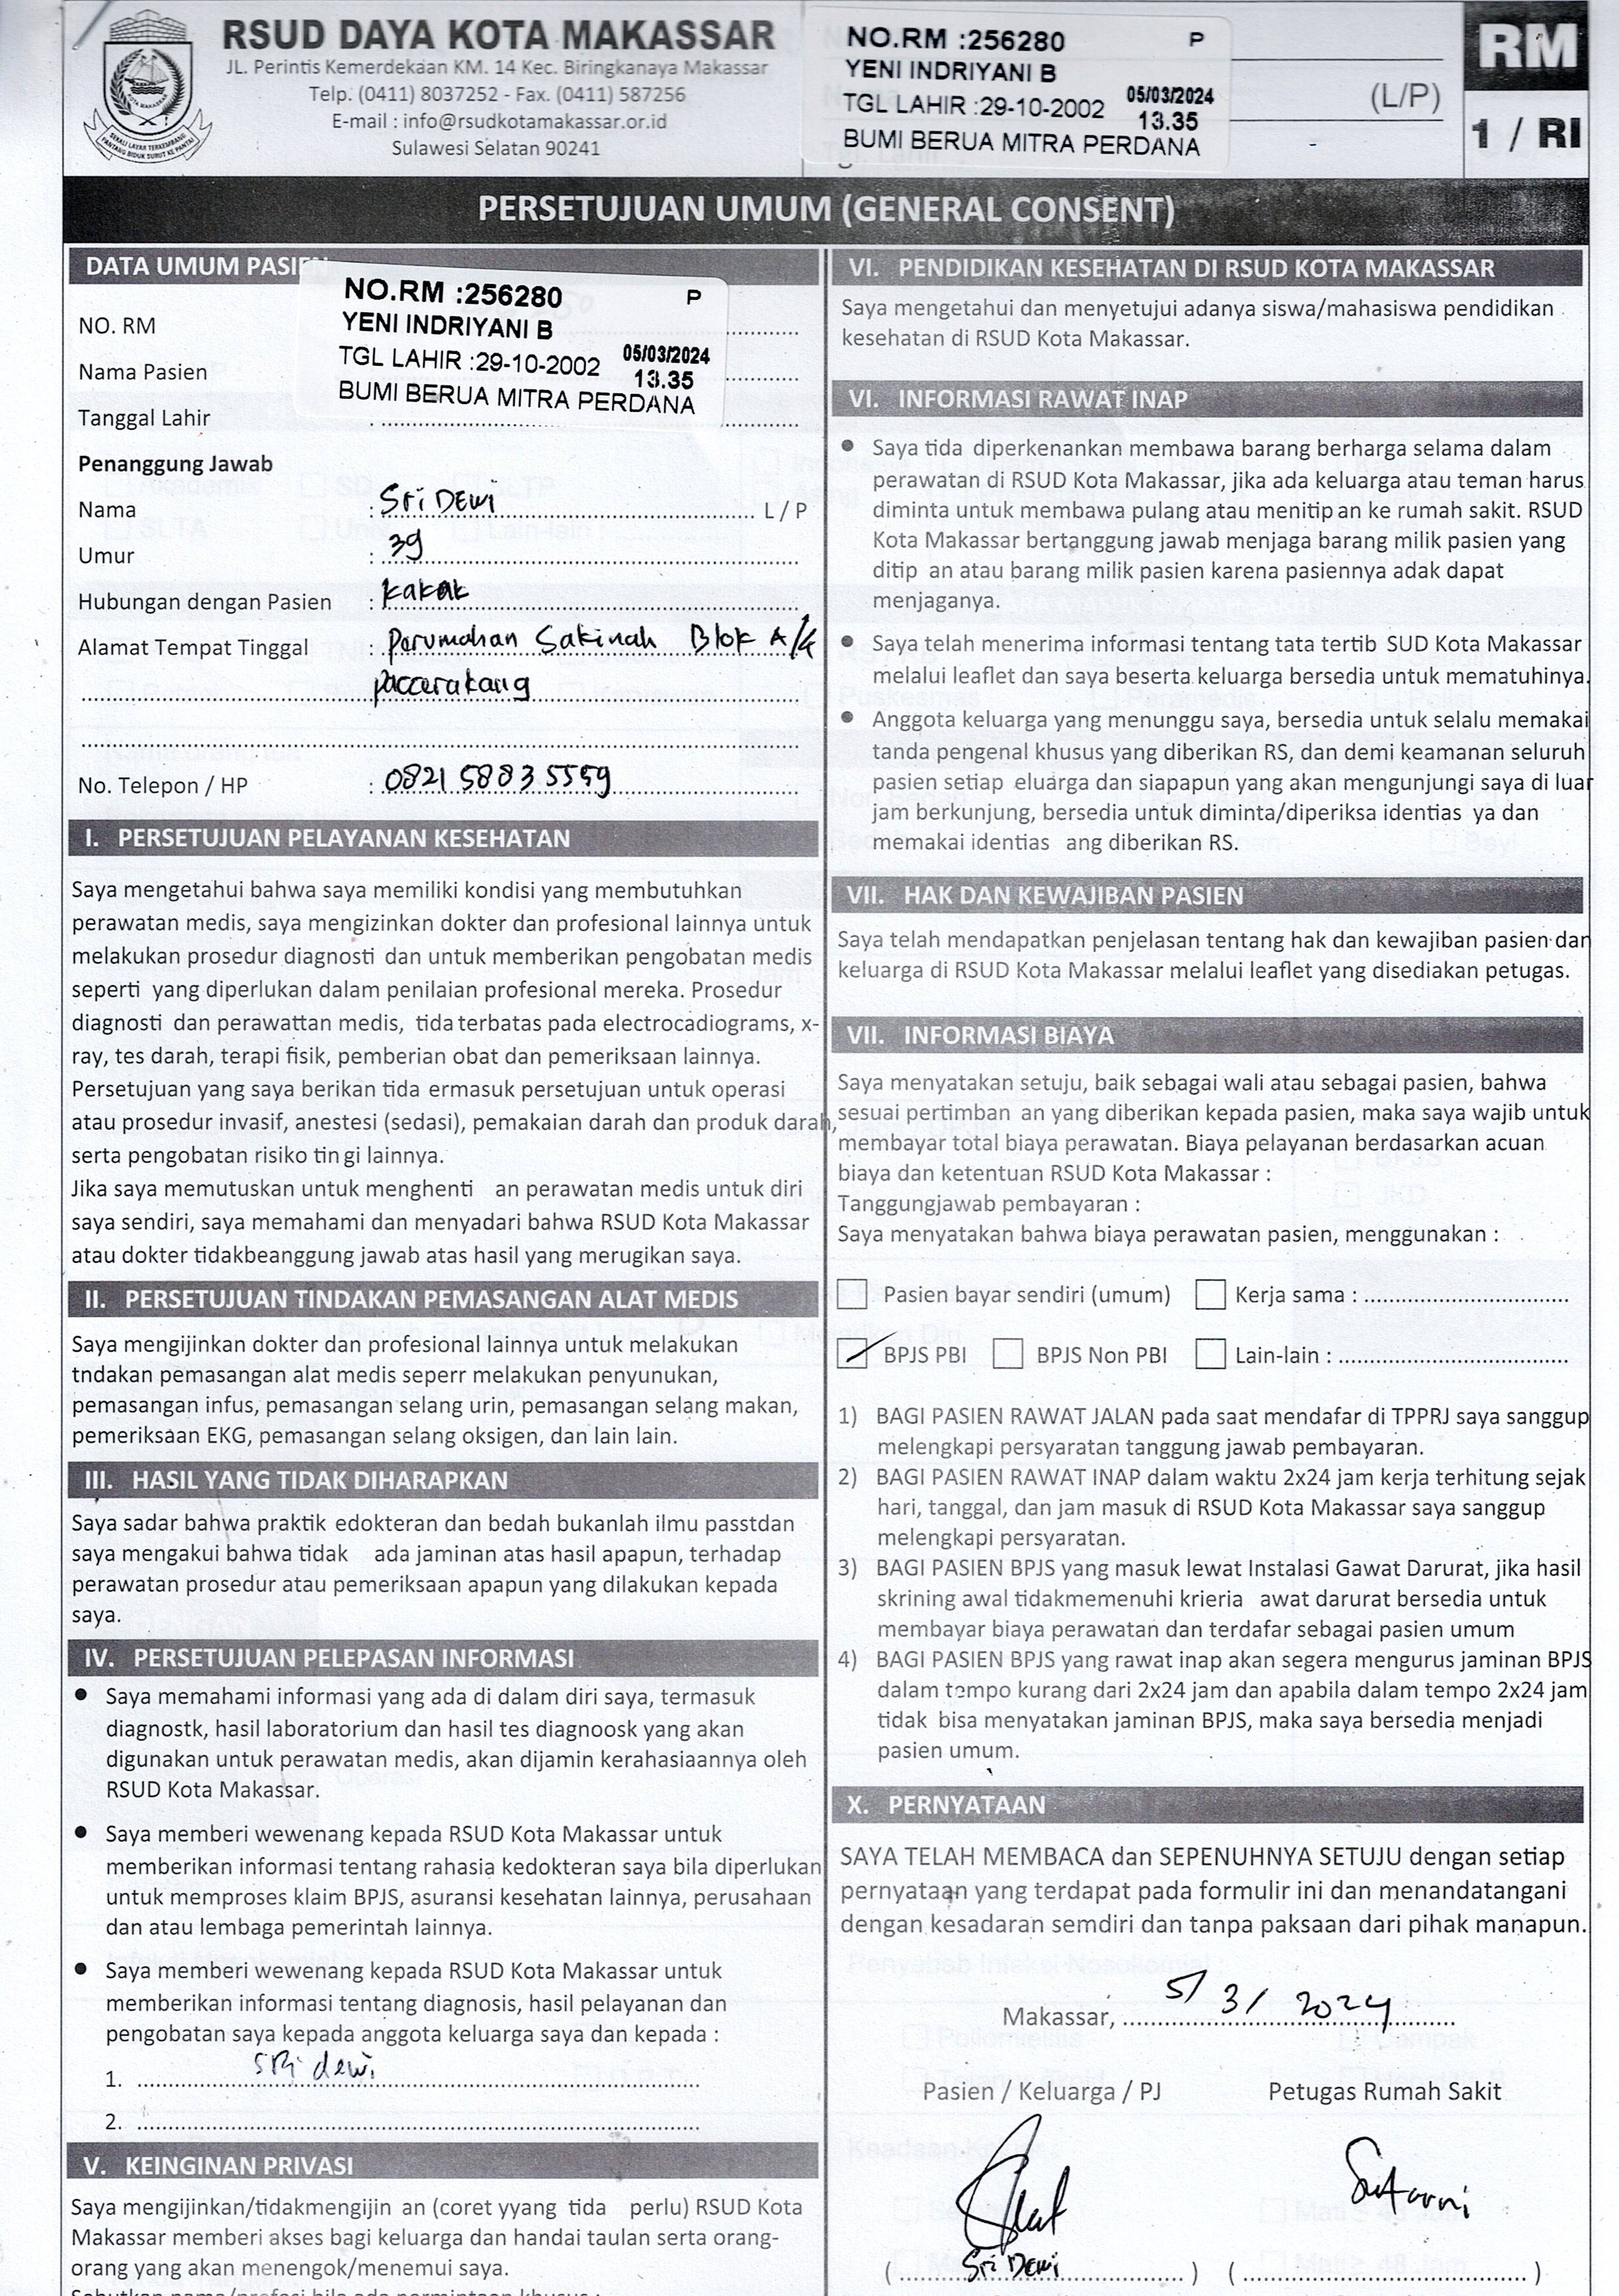 RSUD DAYA KOTA MAKASSAR
JL. Perintis Kemerdekaan KM. 14 Kec. Biringkanaya Makassar
Telp. (0411) 8037252 - Fax. (0411) 587256
E-mail : info@rsudkotamakassar.or.id
Sulawesi Selatan 90241
NO.RM :256280 P
YENI INDRIYANI B
TGL LAHIR :29-10-2002 05/03/2024 13.35
BUMI BERUA MITRA PERDANA
(L/P)
RM
1 / RI
PERSETUJUAN UMUM (GENERAL CONSENT)
DATA UMUM PASIEN
NO.RM :256280 P
YENI INDRIYANI B
TGL LAHIR :29-10-2002 05/03/2024 13.35
BUMI BERUA MITRA PERDANA
NO. RM
Nama Pasien
Tanggal Lahir :
Penanggung Jawab
Nama : Sri Dewi L / P
Umur : 39
Hubungan dengan Pasien : kakak
Alamat Tempat Tinggal : perumahan Sakinah Blok A/4
paccerakang
No. Telepon / HP : 0821 5883 5559
I. PERSETUJUAN PELAYANAN KESEHATAN
Saya mengetahui bahwa saya memiliki kondisi yang membutuhkan
perawatan medis, saya mengizinkan dokter dan profesional lainnya untuk
melakukan prosedur diagnosti dan untuk memberikan pengobatan medis
seperti yang diperlukan dalam penilaian profesional mereka. Prosedur
diagnosti dan perawattan medis, tida terbatas pada electrocadiograms, x-
ray, tes darah, terapi fisik, pemberian obat dan pemeriksaan lainnya.
Persetujuan yang saya berikan tida ermasuk persetujuan untuk operasi
atau prosedur invasif, anestesi (sedasi), pemakaian darah dan produk darah,
serta pengobatan risiko tin gi lainnya.
Jika saya memutuskan untuk menghenti an perawatan medis untuk diri
saya sendiri, saya memahami dan menyadari bahwa RSUD Kota Makassar
atau dokter tidakbeanggung jawab atas hasil yang merugikan saya.
II. PERSETUJUAN TINDAKAN PEMASANGAN ALAT MEDIS
Saya mengijinkan dokter dan profesional lainnya untuk melakukan
tndakan pemasangan alat medis seperr melakukan penyunukan,
pemasangan infus, pemasangan selang urin, pemasangan selang makan,
pemeriksaan EKG, pemasangan selang oksigen, dan lain lain.
III. HASIL YANG TIDAK DIHARAPKAN
Saya sadar bahwa praktik edokteran dan bedah bukanlah ilmu passtdan
saya mengakui bahwa tidak ada jaminan atas hasil apapun, terhadap
perawatan prosedur atau pemeriksaan apapun yang dilakukan kepada
saya.
IV. PERSETUJUAN PELEPASAN INFORMASI
• Saya memahami informasi yang ada di dalam diri saya, termasuk
diagnostk, hasil laboratorium dan hasil tes diagnoosk yang akan
digunakan untuk perawatan medis, akan dijamin kerahasiaannya oleh
RSUD Kota Makassar.
• Saya memberi wewenang kepada RSUD Kota Makassar untuk
memberikan informasi tentang rahasia kedokteran saya bila diperlukan
untuk memproses klaim BPJS, asuransi kesehatan lainnya, perusahaan
dan atau lembaga pemerintah lainnya.
• Saya memberi wewenang kepada RSUD Kota Makassar untuk
memberikan informasi tentang diagnosis, hasil pelayanan dan
pengobatan saya kepada anggota keluarga saya dan kepada :
1. SRi dewi
2.
V. KEINGINAN PRIVASI
Saya mengijinkan/tidakmengijin an (coret yyang tida perlu) RSUD Kota
Makassar memberi akses bagi keluarga dan handai taulan serta orang-
orang yang akan menengok/menemui saya.
VI. PENDIDIKAN KESEHATAN DI RSUD KOTA MAKASSAR
Saya mengetahui dan menyetujui adanya siswa/mahasiswa pendidikan
kesehatan di RSUD Kota Makassar.
VI. INFORMASI RAWAT INAP
• Saya tida diperkenankan membawa barang berharga selama dalam
perawatan di RSUD Kota Makassar, jika ada keluarga atau teman harus
diminta untuk membawa pulang atau menitip an ke rumah sakit. RSUD
Kota Makassar bertanggung jawab menjaga barang milik pasien yang
ditip an atau barang milik pasien karena pasiennya adak dapat
menjaganya.
• Saya telah menerima informasi tentang tata tertib SUD Kota Makassar
melalui leaflet dan saya beserta keluarga bersedia untuk mematuhinya.
• Anggota keluarga yang menunggu saya, bersedia untuk selalu memakai
tanda pengenal khusus yang diberikan RS, dan demi keamanan seluruh
pasien setiap eluarga dan siapapun yang akan mengunjungi saya di luar
jam berkunjung, bersedia untuk diminta/diperiksa identias ya dan
memakai identias ang diberikan RS.
VII. HAK DAN KEWAJIBAN PASIEN
Saya telah mendapatkan penjelasan tentang hak dan kewajiban pasien dan
keluarga di RSUD Kota Makassar melalui leaflet yang disediakan petugas.
VII. INFORMASI BIAYA
Saya menyatakan setuju, baik sebagai wali atau sebagai pasien, bahwa
sesuai pertimban an yang diberikan kepada pasien, maka saya wajib untuk
membayar total biaya perawatan. Biaya pelayanan berdasarkan acuan
biaya dan ketentuan RSUD Kota Makassar :
Tanggungjawab pembayaran :
Saya menyatakan bahwa biaya perawatan pasien, menggunakan :
Pasien bayar sendiri (umum) Kerja sama :
BPJS PBI BPJS Non PBI Lain-lain :
1) BAGI PASIEN RAWAT JALAN pada saat mendafar di TPPRJ saya sanggup
melengkapi persyaratan tanggung jawab pembayaran.
2) BAGI PASIEN RAWAT INAP dalam waktu 2x24 jam kerja terhitung sejak
hari, tanggal, dan jam masuk di RSUD Kota Makassar saya sanggup
melengkapi persyaratan.
3) BAGI PASIEN BPJS yang masuk lewat Instalasi Gawat Darurat, jika hasil
skrining awal tidakmemenuhi krieria awat darurat bersedia untuk
membayar biaya perawatan dan terdafar sebagai pasien umum
4) BAGI PASIEN BPJS yang rawat inap akan segera mengurus jaminan BPJS
dalam tempo kurang dari 2x24 jam dan apabila dalam tempo 2x24 jam
tidak bisa menyatakan jaminan BPJS, maka saya bersedia menjadi
pasien umum.
X. PERNYATAAN
SAYA TELAH MEMBACA dan SEPENUHNYA SETUJU dengan setiap
pernyataan yang terdapat pada formulir ini dan menandatangani
dengan kesadaran semdiri dan tanpa paksaan dari pihak manapun.
Makassar, 5/3/2024
Pasien / Keluarga / PJ Petugas Rumah Sakit
Sutarni
( Sri Dewi ) ( )